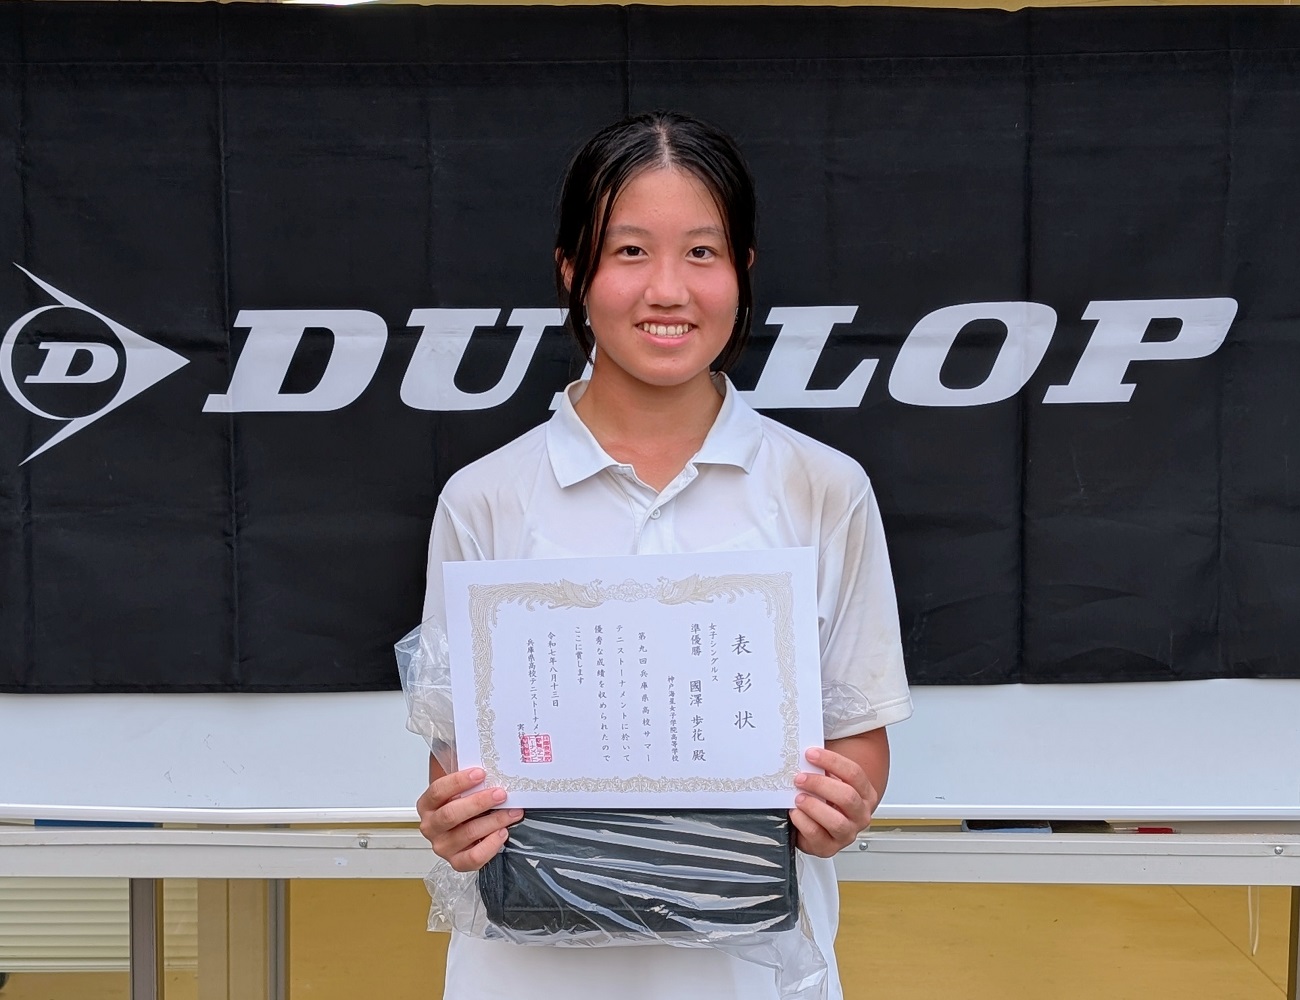 D DUNLOP
表彰状
女子シングルス
準優勝 國澤 歩花 殿
神戸海星女子学院高等学校
第九回兵庫県高校サマー
テニストーナメントに於いて
優秀な成績を収められたので
ここに賞します
令和七年八月十三日
兵庫県高校テニストーナメン
実